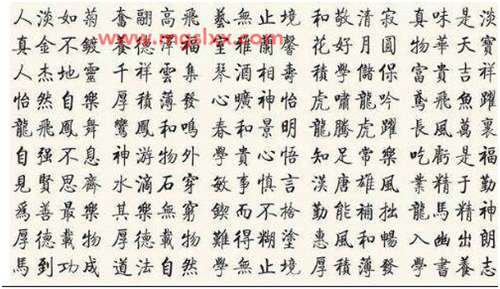 人淡如菊 奮翮高飛 藝無止境 和敬清寂 真味是淡
www.mgslxx.com
真金不鍍 養德 福 室雅蘭馨 花好月圓 物華天寶
人杰地靈 千祥雲集 琴酒相壽 積學儲保 富貴吉祥
怡然自樂 厚積薄發 心曠神怡 虎嘯龍吟 鳶飛魚躍
龍飛鳳舞 鸞鳳和鳴 春和景明 龍騰虎躍 長風萬裏
自强不息 神游物外 學貴心悟 知足常樂 吃虧是福
見賢思齊 水滴石穿 敏事慎言 漢唐雄風 業精于勤
爲善最樂 其樂無窮 鍥而不捨 勤能補拙 龍馬精神
厚德載物 厚德載物 難得糊塗 惠風和暢 入幽出朗
馬到功成 道法自然 學無止境 厚積薄發 學書養志